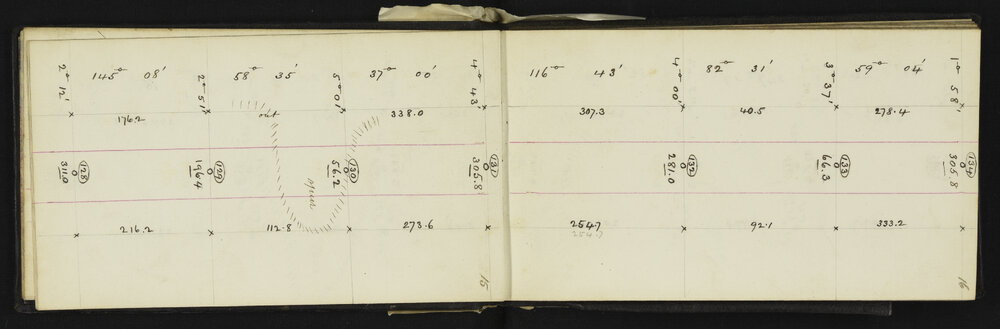 2° 12' 145° 08' 2° 51' 58° 35' 5° 01' 37° 00' 4° 43'
176.2 out 338.0
128 0 311.0 129 0 196.4 130 0 56.2 131 0 305.8
spur
216.2 112.8 273.6
15
116° 43' 4° 00' 82° 31' 3° 37' 59° 04' 1° 58'
307.3 40.5 278.4
132 0 281.0 133 0 66.3 134 0 305.8
254.7 92.1 333.2
254.7
16